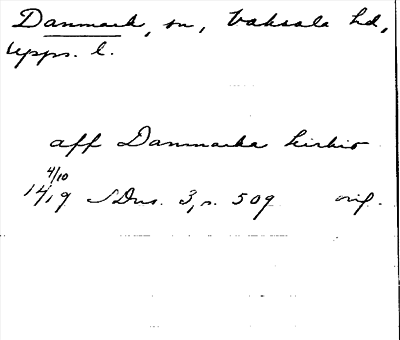 Danmark, sn, Vaksala hd,
Upps. l.
aff Danmarka kirkio
4/10
1419 SDns. 3, s. 509 orig.